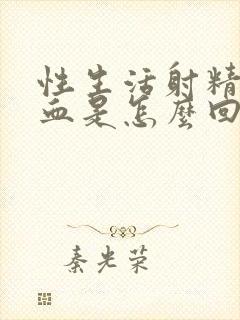 性生活射精
血是怎麼回
秦光荣